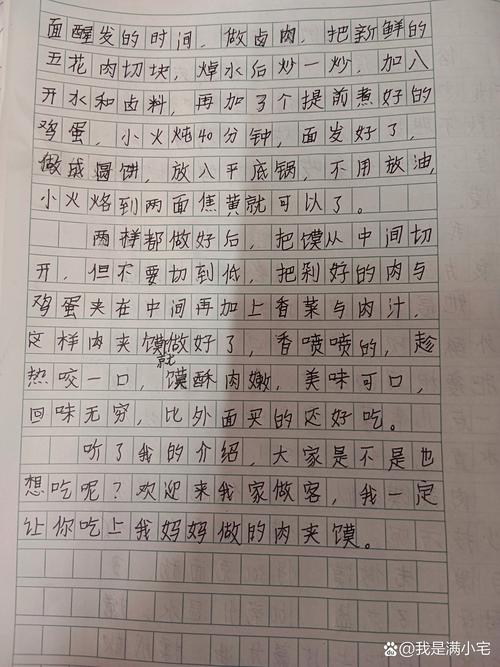 面醒发的时间，做卤肉，把新鲜的
五花肉切块，焯水后炒一炒，加入
开水和卤料，再加了个提前煮好的
鸡蛋，小火炖40分钟，面发好了，
做成圆饼，放入平底锅，不用放油，
小火烙到两面焦黄就可以了。
两样都做好后，把馍从中间切
开，但不要切到低，把剁好的肉与
鸡蛋夹在中间再加上香菜与肉汁，
这样肉夹馍就做好了，香喷喷的，趁
热咬一口，馍酥肉嫩，美味可口，
回味无穷，比外面买的还好吃。
听了我的介绍，大家是不是也
想吃呢？欢迎来我家做客，我一定
让你吃上我妈妈做的肉夹馍。
@我是满小宅